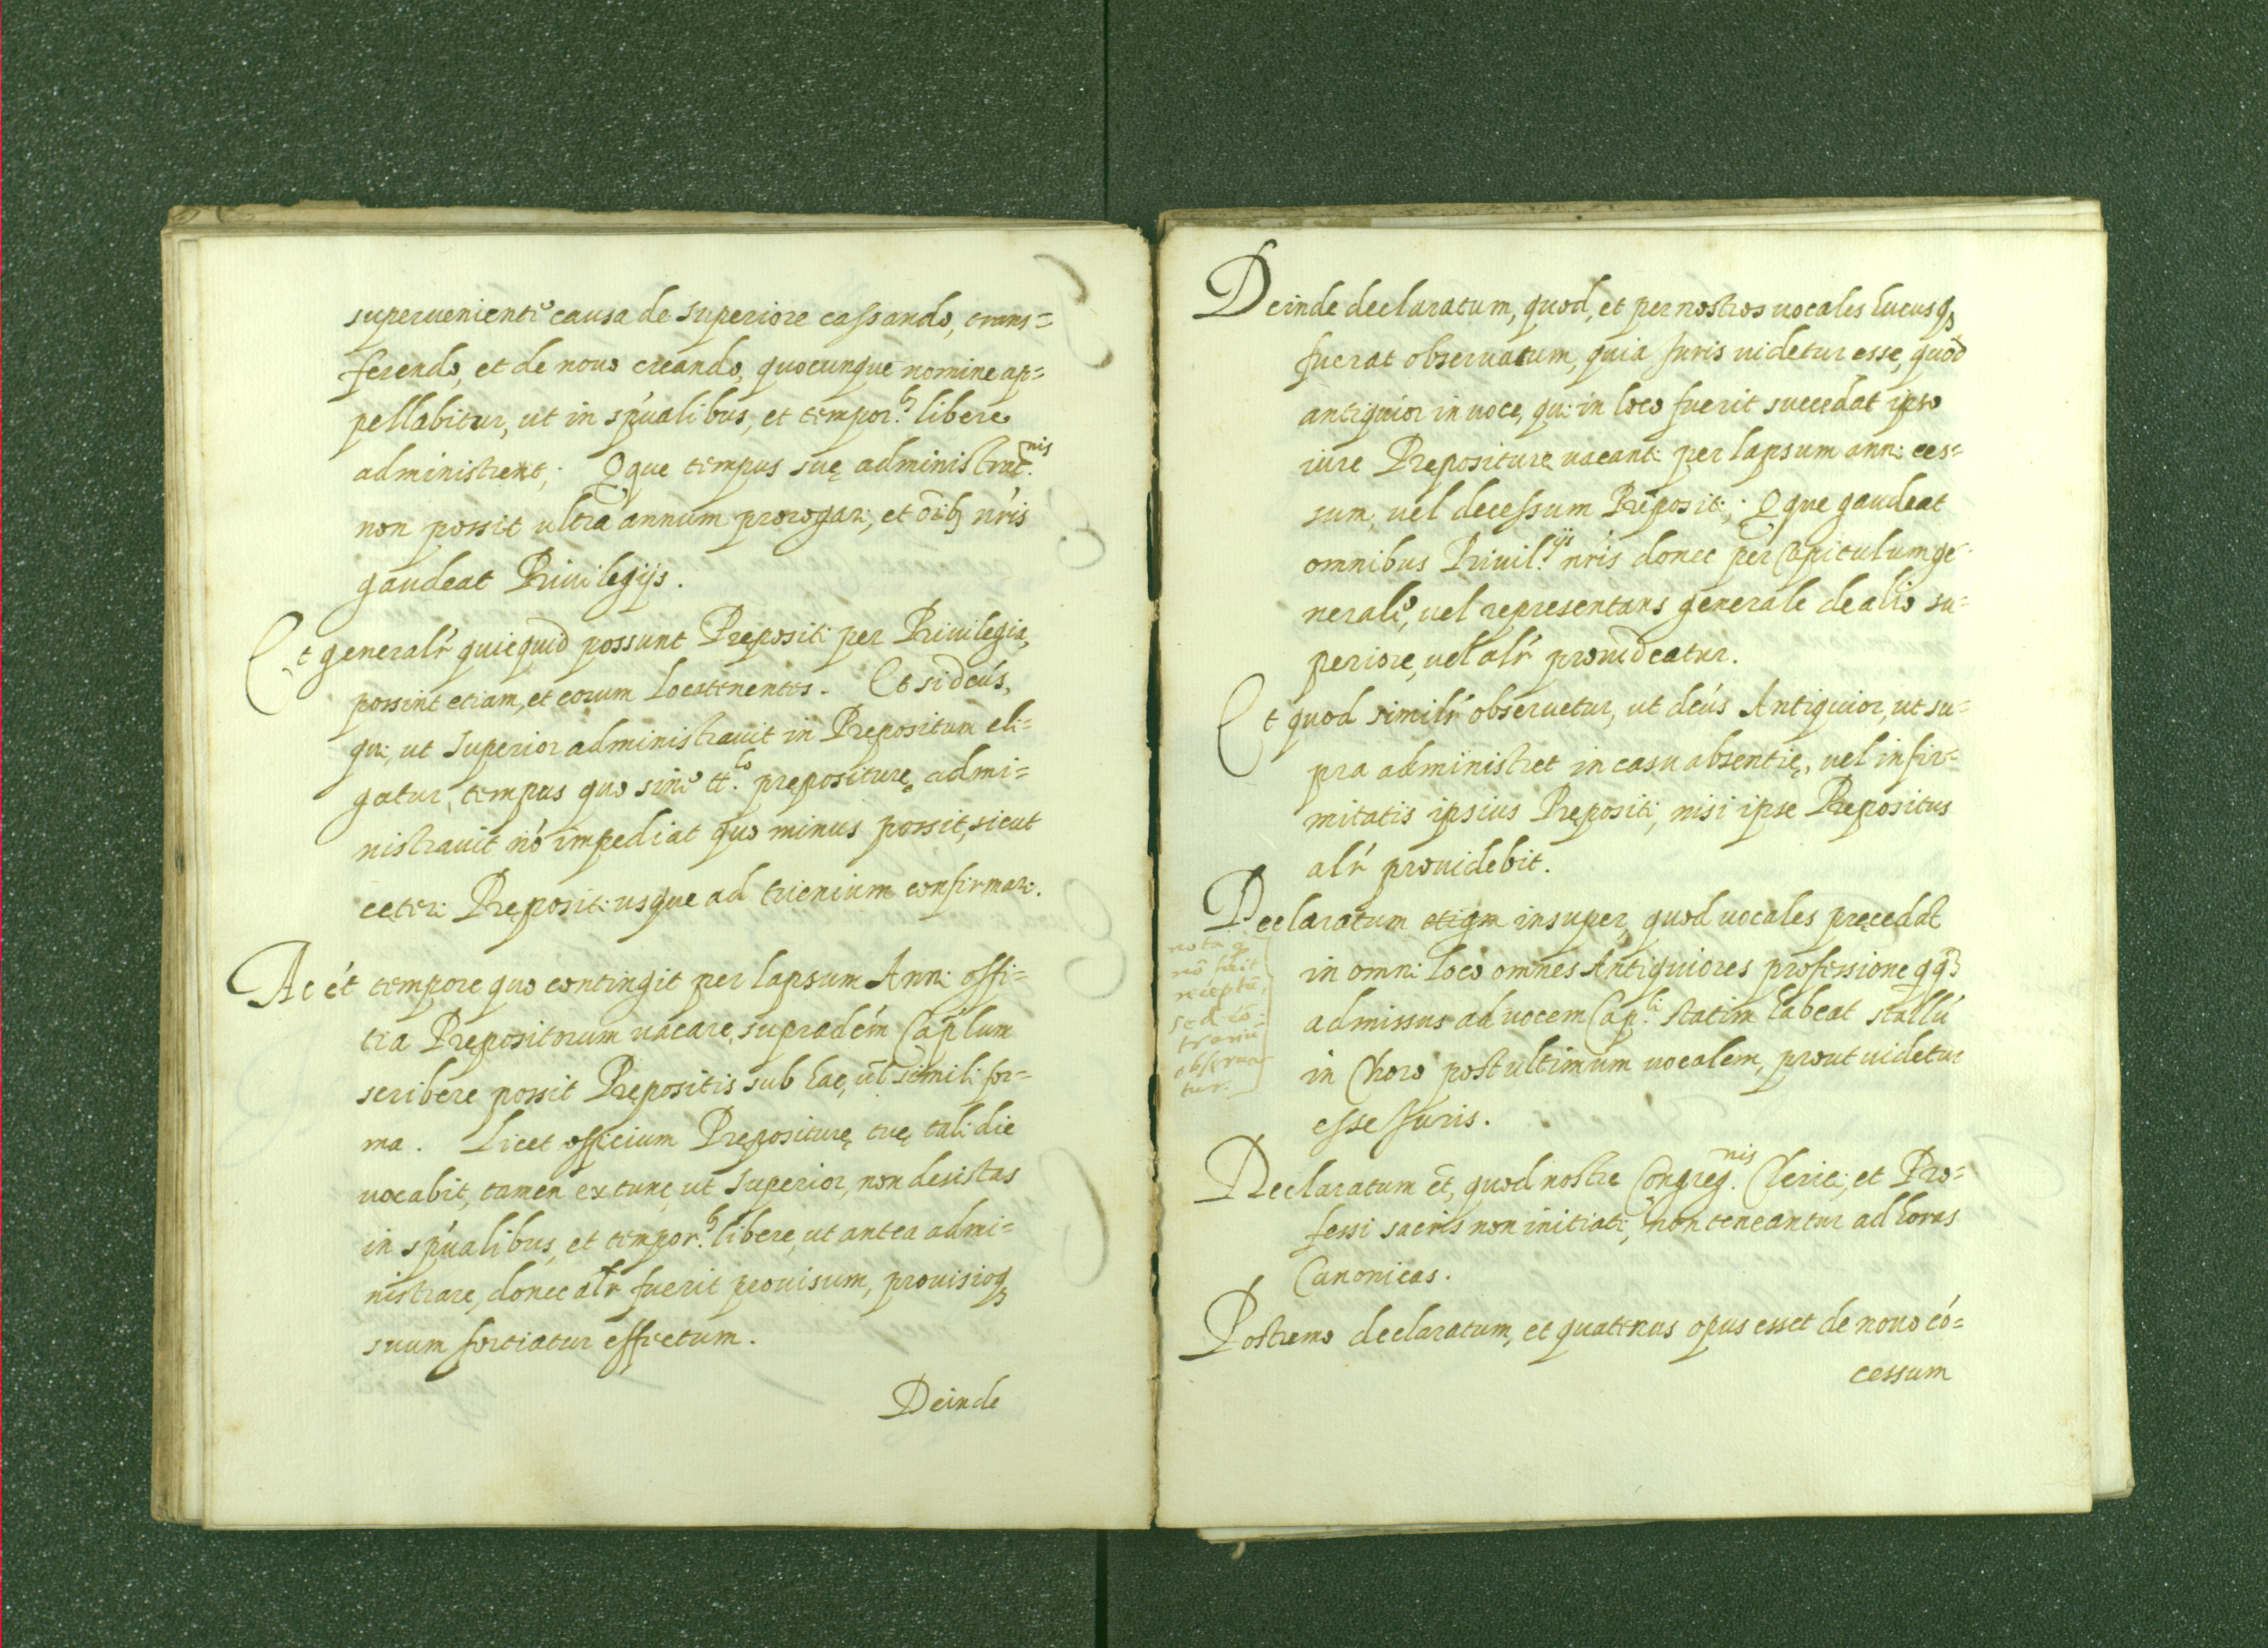 superueniente causa de superiore cassando, trans=
ferendo, et de nouo creando, quocunque nomine ap=
pellabitur, ut in sp'ualibus, et tempor.bs libere
administrent; Qque tempus suę administrat.nis
non possit ultra annum prorogari, et oib; nr'is
gaudeat Priuilegijs.
Et generalr' quicquid possunt Prepositi per Priuilegia,
possint etiam, et eorum Locatenentes. Et si dcu's,
qui, ut Superior administrauit in Prepositum eli=
gatur, tempus quo sine tt.lo prępositurę admi=
nistrauit no' impediat quo minus possit, sicut
ceteri Pręposit: usque ad trienium confirmari.
Ac e't tempore quo contingit per lapsum Anni offi=
tia Prępositorum uacare, supradc'm Cap'lum
scribere possit Prępositis sub hac, ul' simili for=
ma. Licet officium Prępositurę tuę tali die
uocabit, tamen ex tunc, ut Superior, non desistas
in sp'ualibus, et tempor.bs libere, ut antea admi=
nistrare, donec alr' fuerit prouisum, prouisioq;
suum sortiatur effectum.
Deinde
Deinde declaratum, quod, et per nostros uocales hucusq;
fuerat obseruatum, quia Juris uidetur esse, quod
antiquior in uoce, qui in loco fuerit succedat ipso
iure Pręposituræ uacanti per lapsum anni ces=
sum, uel decessum Prępositi; Qque gaudeat
omnibus Priuil.ijs nr'is donec per Capitulum ge=
nerale, uel representans generale de alio su=
periore, uel alr' prouideatur.
Et quod similr' obseruetur, ut dcu's Antiquior, ut su=
pra administret in casu absentię, uel infir=
mitatis ipsius Prępositi, nisi ipse Prępositus
alr' prouidebit.
Declaratum etiam insuper, quod uocales pręcedat
nota q
no fuit
receptu,
sed co=
trariu
obserua=
tur.
in omni loco omnes Antiquiores professione qq;
admissus ad uocem Cap.li statim habeat stallu'
in Choro post ultimum uocalem, prout uidetur
esse Juris.
Declaratum et, quod nostre Congreg.nis Clerici, et Pro=
fessi sacris non initiati, non teneantur ad horas
Canonicas.
Postremo declaratum, et quatenus opus esset de nouo co'=
cessum